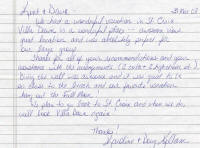 Kent & Dave - 21 Nov 03
We had a wonderful vacation in St. Croix
Villa Dawn is a wonderful place - awesome view
great location and was absolutely perfect for
our large group.
Thanks for all of your recommendations and your
assistance with the arrangements
Being the wall was awesome and it was great to be
so close to the beach and our favorite vacation
hang out the Full Moon!
We plan to go back to St. Croix and when we do,
will book Villa Dawn again.
Thanks!
& Doug